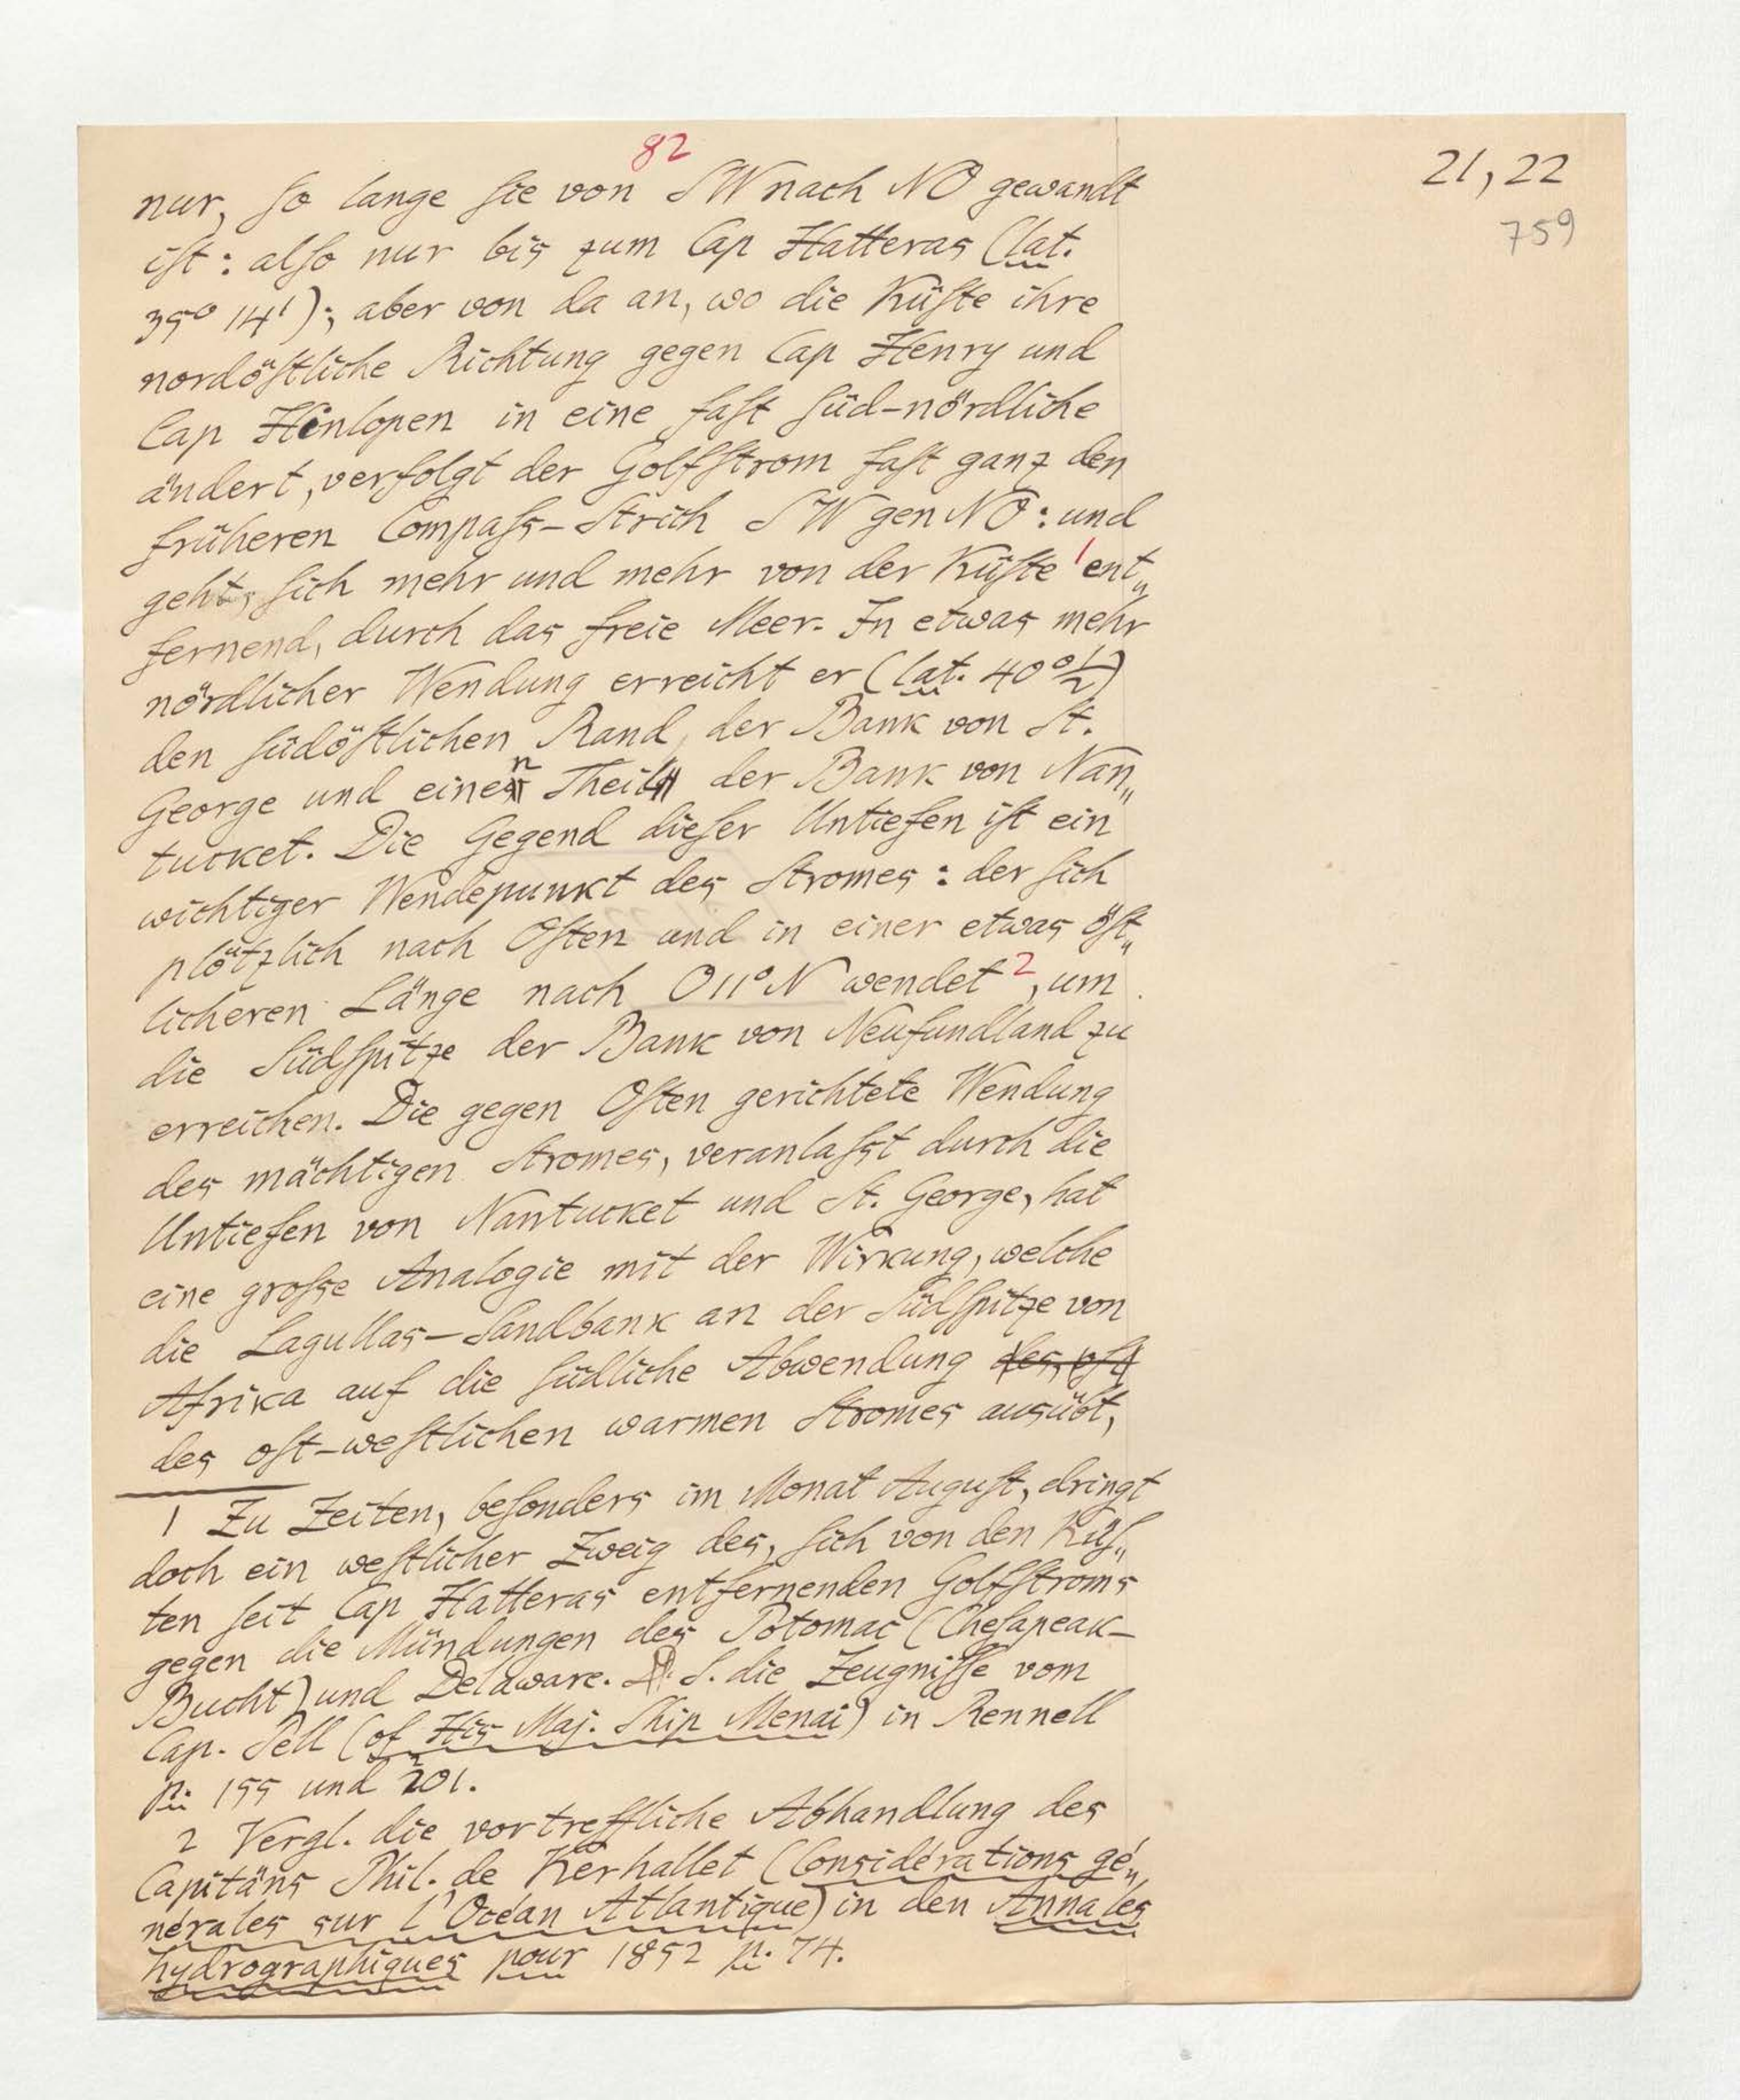 82
21, 22
759
nur, ſo lange ſie von SW nach NO gewandt
iſt: alſo nur bis zum Cap Hatteras (lat.
35° 14'); aber von da an, wo die Küſte ihre
nordöſtliche Richtung gegen Cap Henry und
Cap Henlopen in eine faſt ſüd-nördliche
ändert, verfolgt der Golfſtrom faſt ganz den
früheren Compaſs-Strich SW gen NO: und
geht, ſich mehr und mehr von der Küſte 1 ent„
fernend, durch das freie Meer. In etwas mehr
nördlicher Wendung erreicht er (lat. 40°½)
den ſüdöſtlichen Rand der Bank von St.
George und einen Theil der Bank von Nan„
tucket. Die Gegend dieſer Untiefen iſt ein
wichtiger Wendepunkt des Stromes: der ſich
plötzlich nach Oſten und in einer etwas öſt„
licheren Länge nach O 11° N wendet 2, um
die Südſpitze der Bank von Neufundland zu
erreichen. Die gegen Oſten gerichtete Wendung
des mächtigen Stromes, veranlaſst durch die
Untiefen von Nantucket und St. George, hat
eine groſse Analogie mit der Wirkung, welche
die Lagullas-Sandbank an der Südſpitze von
Afrika auf die ſüdliche Abwendung des oſt
des oſt-weſtlichen warmen Stromes ausübt,
1 Zu Zeiten, beſonders im Monat Auguſt, dringt
doch ein weſtlicher Zweig des, ſich von den Küſ„
ten ſeit Cap Hatteras entfernenden Golfſtroms
gegen die Mündungen des Potomac (Cheſapeak-
Bucht) und Delaware. S. die Zeugniſſe vom
Cap. Pell (of His Maj. Ship Menai) in Rennell
p. 155 und 201.
2 Vergl. die vortreffliche Abhandlung des
Capitäns Phil. de Kerhallet (Considérations gé„
nérales sur l'Océan Atlantique) in den Annales
hydrographiques pour 1852 p. 74.